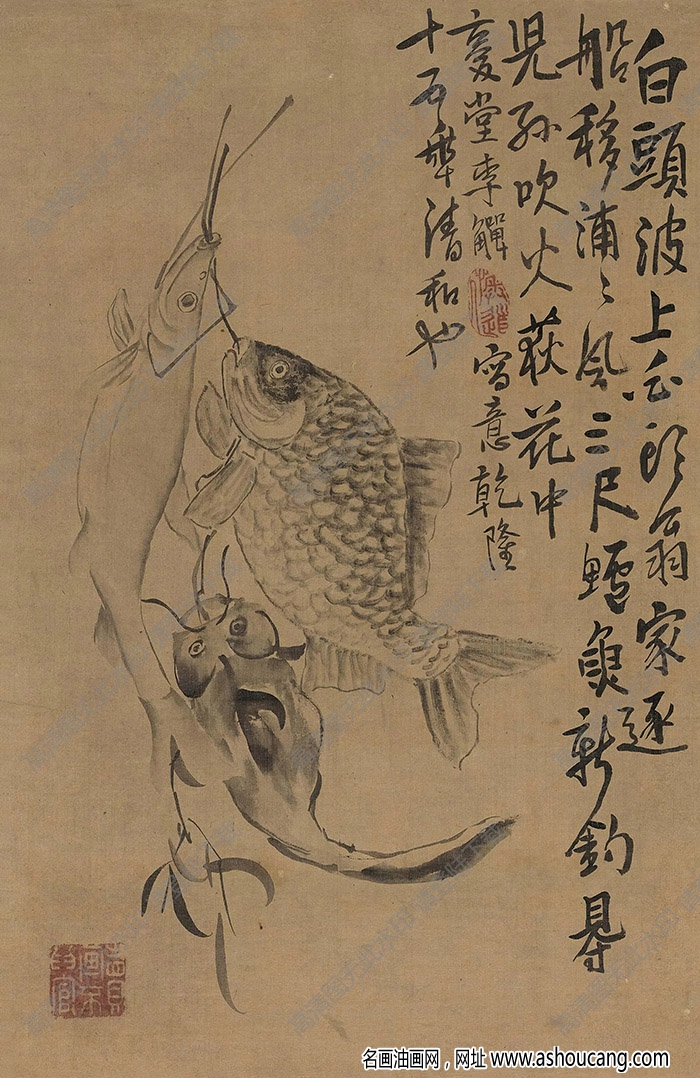 白頭波上白头翁家逐
船移浦〻風三尺鱸魚新釣得
児孫吹火荻花中
复堂李鱓
寫意乾隆
十五年清和也
名画油画网，网址 www.ashoucang.com